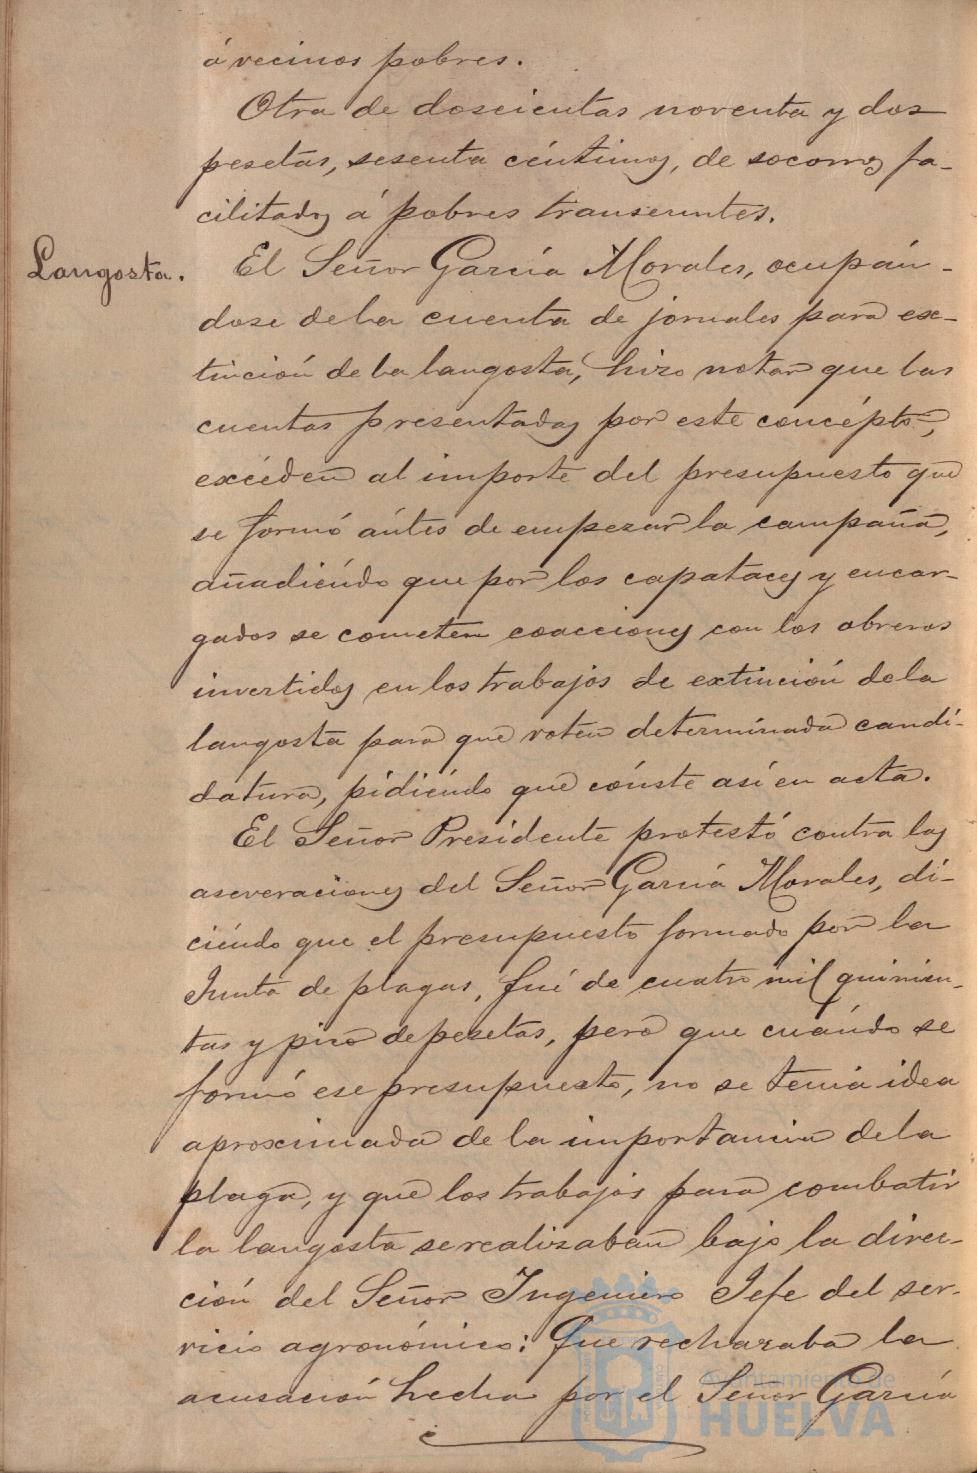 á vecinos pobres.
Otra de doscientas noventa y dos
pesetas, sesenta céntimos, de socorros fa-
cilitados á pobres transeuntes.
Langosta.
El Señor García Morales, ocupán-
dose de la cuenta de jornales para ex-
tinción de la langosta, hizo notar que las
cuentas presentadas por este concépto,
excéden al importe del presupuesto que
se formó ántes de empezar la campaña,
añadiéndo que por los capataces y encar-
gados se cometen coacciones con los obreros
invertidos en los trabajos de extinción de la
langosta para que voten determinada candi-
datura, pidiéndo que cónste así en acta.
El Señor Presidente protestó contra las
aseveraciones del Señor García Morales, di-
ciéndo que el presupuesto formado por la
Junta de plagas, fué de cuatro mil quinien-
tas y pico de pesetas, pero que cuándo se
formó ese presupuesto, no se tenia idea
aproximada de la importancia de la
plaga, y que los trabajos para combatir
la langosta se realizaban bajo la direc-
ción del Señor Ingeniero Jefe del ser-
vicio agronómico: Que rechazaba la
acusación hecha por el Señor García
Ayuntamiento de
HUELVA